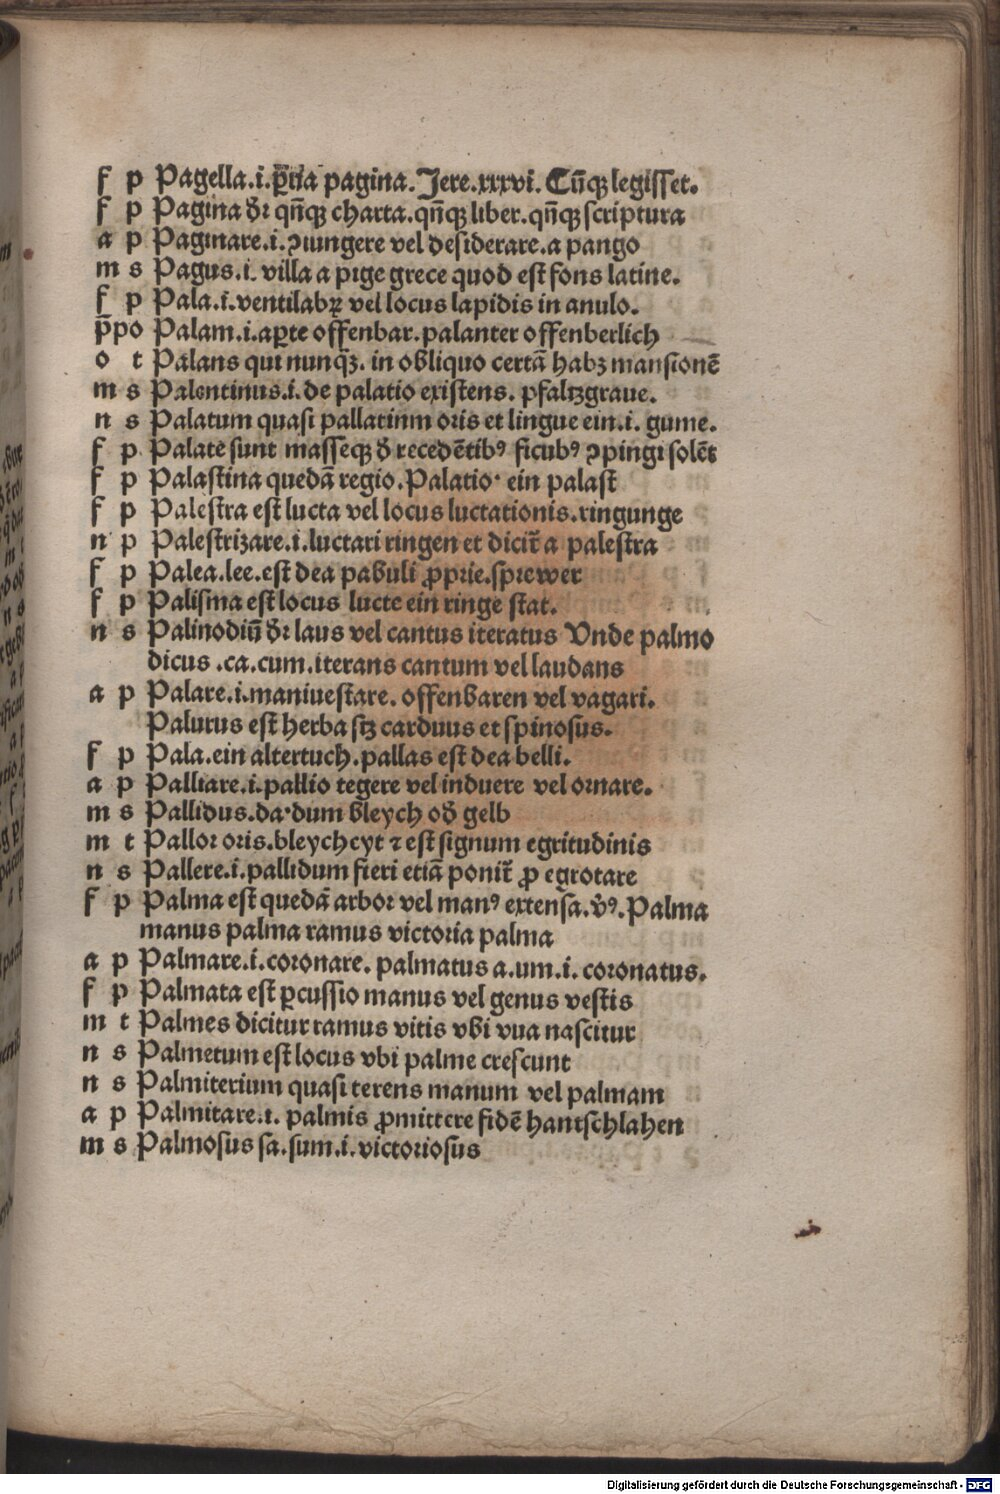 f p Pagella.i.ꝑua pagina. Jere.xxxvi. Cūqꝫ legisset.
f p Pagina dr̄ qn̄qꝫ charta.qn̄qꝫ liber.qn̄qꝫ scriptura
a p Paginare.i.ꝯiungere vel desiderare.a pango
m s Pagus.i. villa a pige grece quod est fons latine.
f p Pala.i.ventilabꝝ vel locus lapidis in anulo.
p̄po Palam.i.aꝑte offenbar.palanter offenberlich
o t Palans qui nunqꝫ. in obliquo certā habꝫ mansionē
m s Palentinus.i.de palatio existens. pfaltzgraue.
n s Palatum quasi pallatinm oris et lingue ein.i. gume.
f p Palate sunt masseqꝫ đ recedētibꝰ ficubꝰ ꝯpingi solēt
f p Palastina quedā regio.Palatio· ein palast
f p Palestra est lucta vel locus luctationis.ringunge
n p Palestrizare.i.luctari ringen et dicit̄ a palestra
f p Palea.lee.est dea pabuli ꝓprie.sprewer
f p Palisma est locus lucte ein ringe stat.
n s Palinodiū dr̄ laus vel cantus iteratus Vnde palmo
dicus .ca.cum.iterans cantum vel laudans
a p Palare.i.maniuestare. offenbaren vel vagari.
Palurus est herba sꝫ carduus et spinosus.
f p Pala.ein altertuch.pallas est dea belli.
a p Palliare.i.pallio tegere vel induere vel ornare.
m s Pallidus.da·dum bleych ođ gelb
m t Pallor oris.bleycheyt ⁊ est signum egritudinis
n s Pallere.i.pallidum fieri etiā ponit̄ ꝓ egrotare
f p Palma est quedā arbor vel manꝰ extensa.v̓ꝰ.Palma
manus palma ramus victoria palma
a p Palmare.i.coronare. palmatus a.um.i. coronatus.
f p Palmata est ꝑcussio manus vel genus vestis
m t Palmes dicitur ramus vitis vbi vua nascitur
n s Palmetum est locus vbi palme crescunt
n s Palmiterium quasi terens manum vel palmam
a p Palmitare.i. palmis ꝓmittere fidē hantschlahen
m s Palmosus sa.sum.i.victoriosus
Digitalisierung gefördert durch die Deutsche Forschungsgemeinschaft - DFG